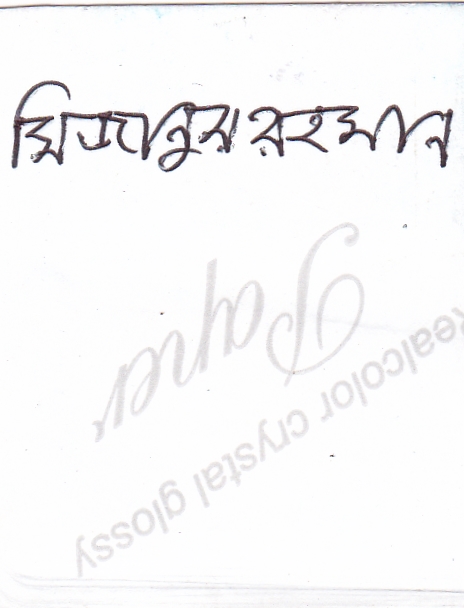 মিজানুর রহমান
Paper
Realcolor crystal glossy